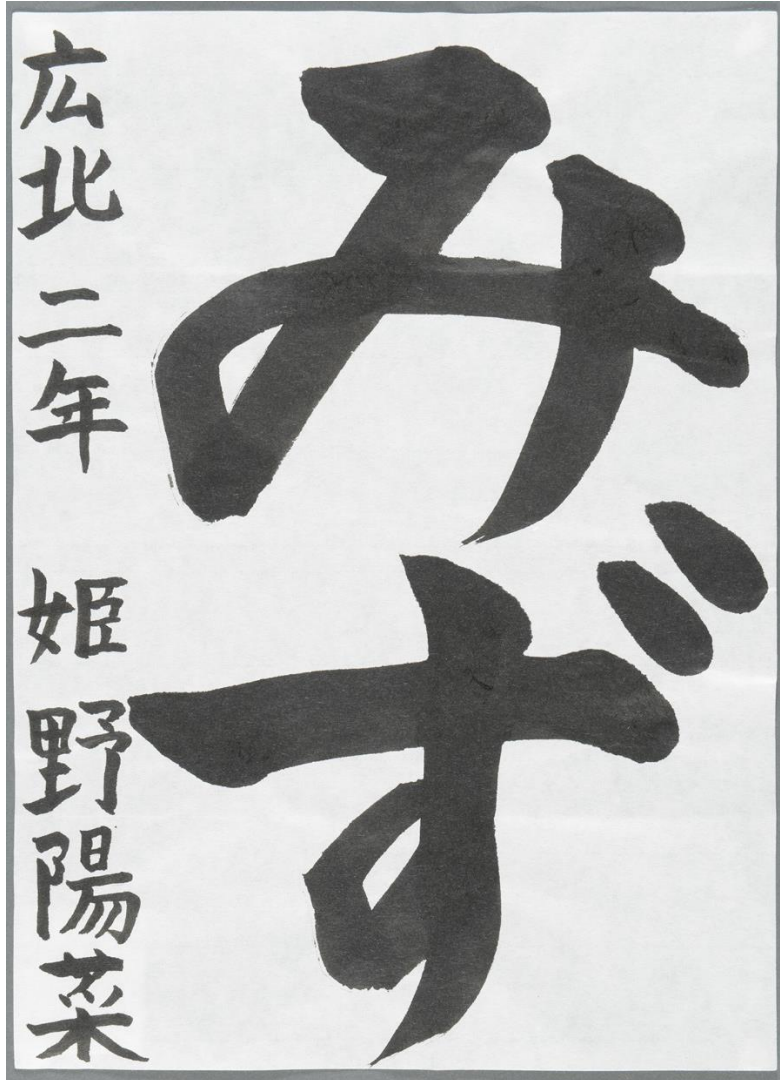 みず
広北 二年 姫野陽菜